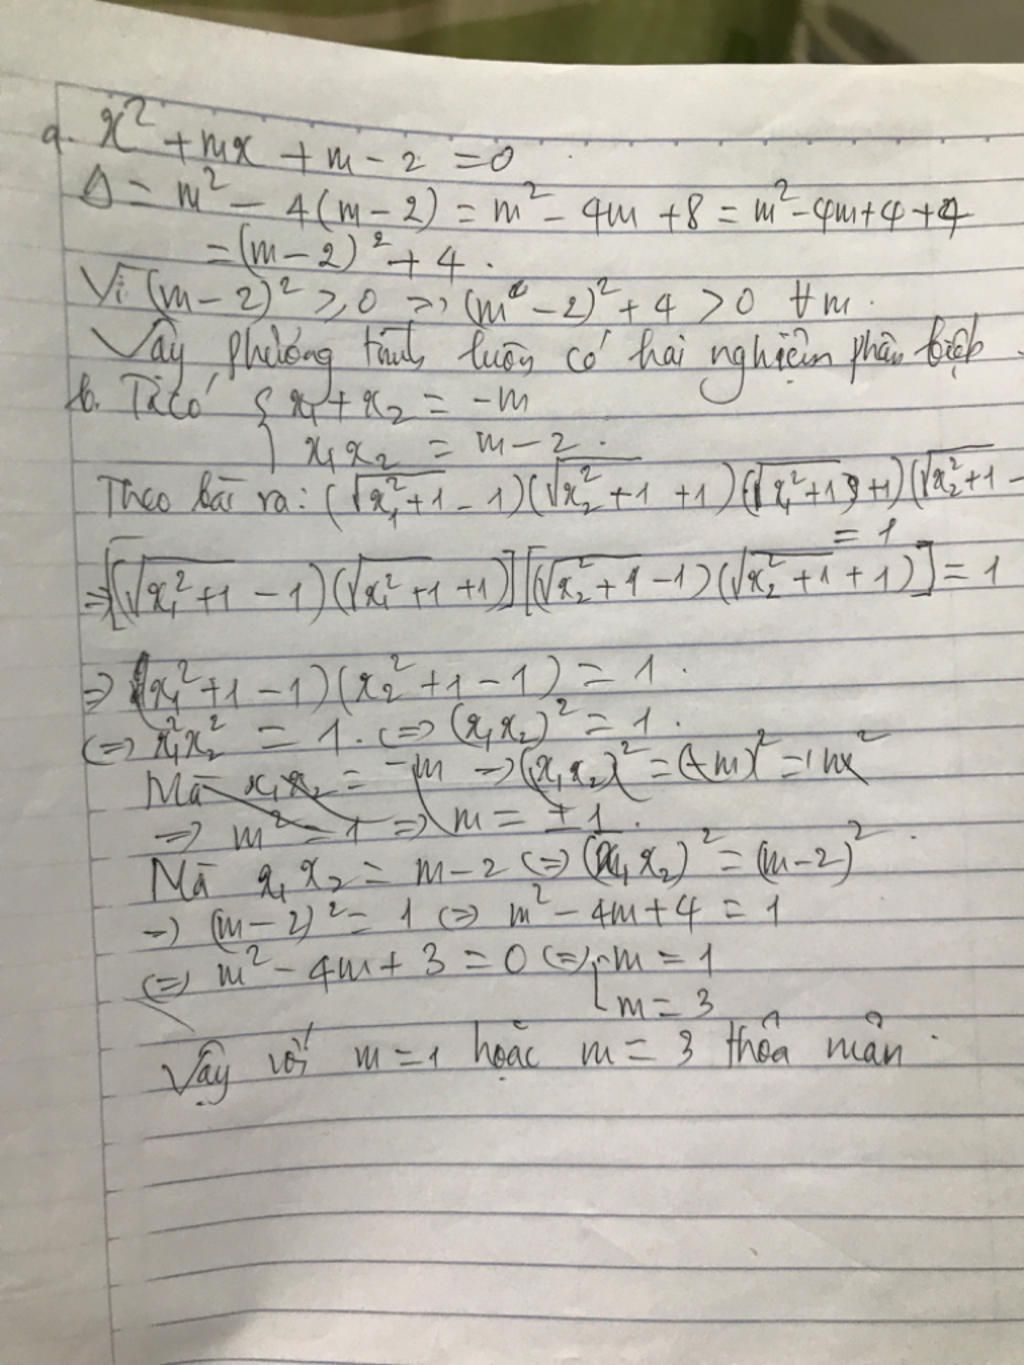 a. x² + mx + m - 2 = 0
Δ = m² - 4(m - 2) = m² - 4m + 8 = m² - 4m + 4 + 4
= (m - 2)² + 4.
Vì (m - 2)² ≥ 0 => (m - 2)² + 4 > 0 ∀m.
Vậy phương trình luôn có hai nghiệm phân biệt.
b. Ta có { x₁ + x₂ = -m
x₁x₂ = m - 2.
Theo bài ra: (√x₁²+1 - 1)(√x₂²+1 + 1)(√x₁²+1 + 1)(√x₂²+1 -
= 1
=> [(√x₁²+1 - 1)(√x₁²+1 + 1)][(√x₂²+1 - 1)(√x₂²+1 + 1)] = 1
=> (x₁²+1 - 1)(x₂²+1 - 1) = 1.
<=> x₁²x₂² = 1. <=> (x₁x₂)² = 1.
Mà x₁x₂ = -m => (x₁x₂)² = (-m)² = m²
=> m² = 1 => m = ±1.
Mà x₁x₂ = m - 2 <=> (x₁x₂)² = (m - 2)².
=> (m - 2)² = 1 <=> m² - 4m + 4 = 1
<=> m² - 4m + 3 = 0 <=> [ m = 1
m = 3
Vậy với m = 1 hoặc m = 3 thỏa mãn.